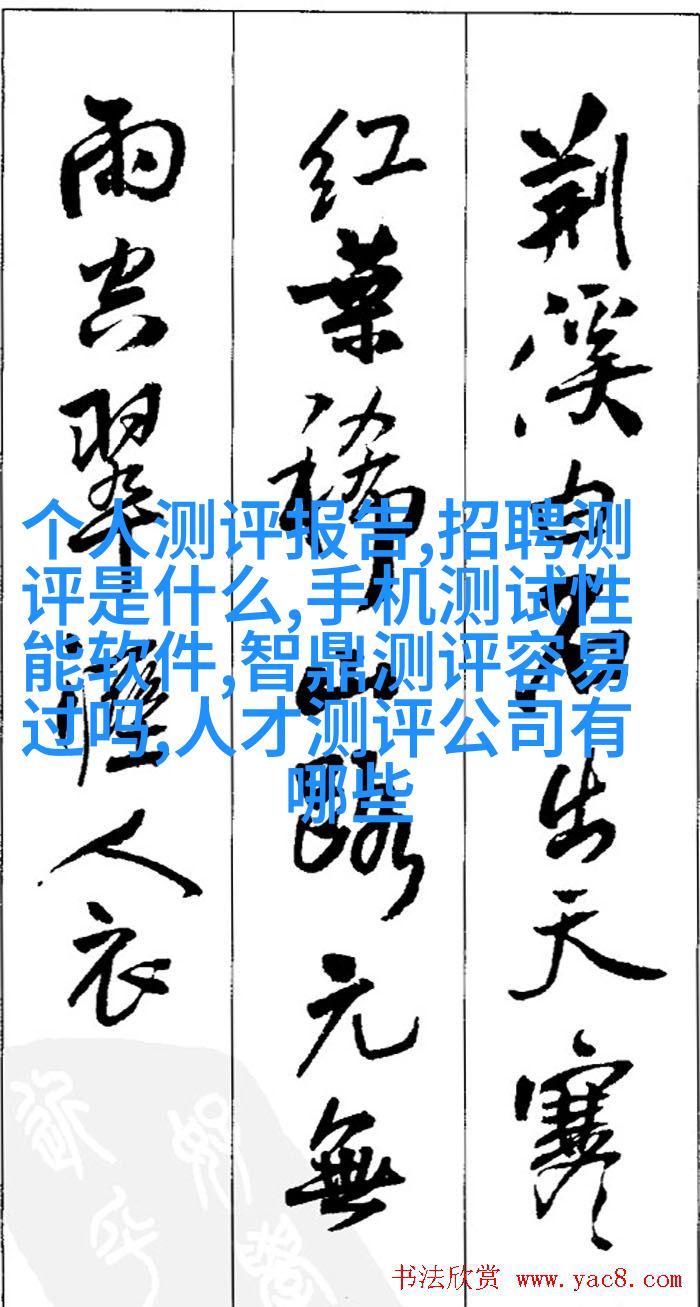 荆溪白石出天寒
红葉稀山路元無
雨空翠濕人衣
个人测评报告,招聘测
评是什么,手机测试性
能软件,智鼎测评容易
过吗,人才测评公司有
哪些
书法欣赏 www.yac8.com